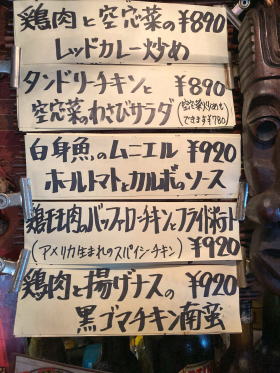 鶏肉と空芯菜の ¥890
レッドカレー炒め
タンドリーチキンと ¥890
空芯菜のわさびサラダ(空芯菜炒めも
できます¥780)
白身魚のムニエル ¥920
ホールトマトとカルボのソース
鶏モモ肉のバッファローチキンとフライドポテト
(アメリカ生まれのスパイシーチキン) ¥920
鶏肉と揚げナスの ¥920
黒ゴマチキン南蛮